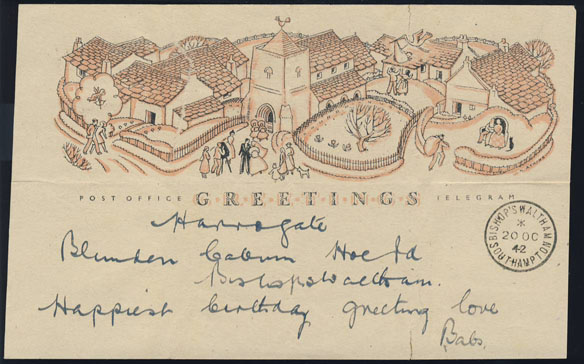 POST OFFICE GREETINGS TELEGRAM
BISHOP'S WALTHAM
*
20 OC
42
SOUTHAMPTON
Harrogate
Blunden
Bishopswaltham.
Happiest birthday greeting love
Babs.